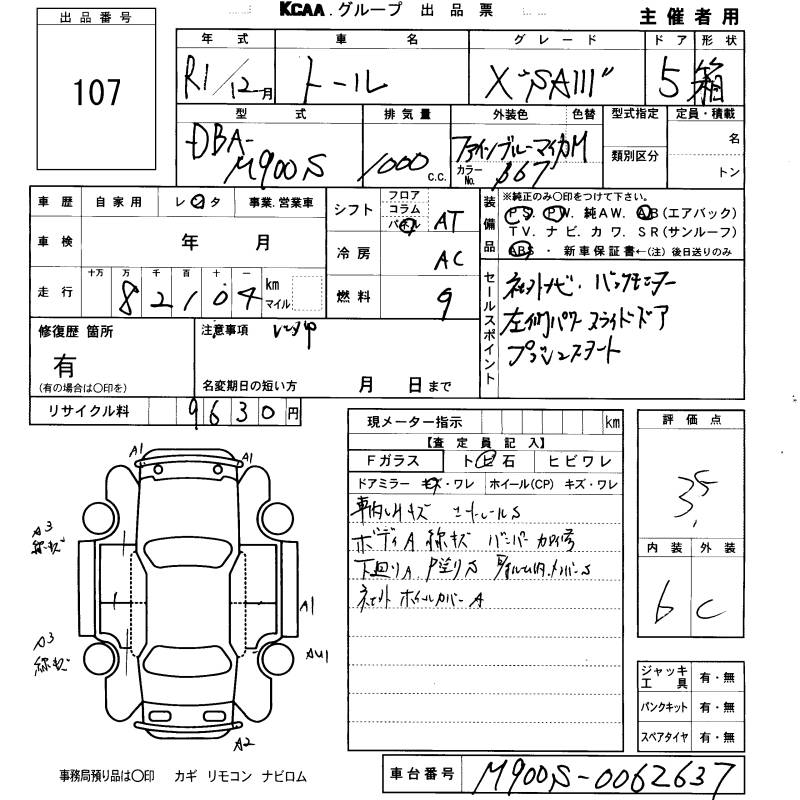 出品番号
107
KCAA.グループ 出品票
主催者用
年式 車名 グレード ドア 形状
R1/12月 トール X"SAIII" 5 箱
型式 排気量 外装色 色替 型式指定 定員・積載
DBA-M900S 1000c.c. ファインブルーマイカM
カラーNo. B67 類別区分 名
トン
車歴 自家用 レンタ 事業.営業車
車検 年 月
走行 十万 万 千 百 十 一
8 2 1 0 4 km マイル
シフト フロア コラム パネル AT
冷房 AC
燃料 9
装備品 ※純正のみ〇印をつけて下さい。
PS. PW. 純AW. AB(エアバック)
TV. ナビ. カワ. SR(サンルーフ)
ABS ・ 新車保証書←(注) 後日送りのみ
セールスポイント
社外ナビ. バックモニター
左側パワースライドドア
プッシュスタート
修復歴 箇所
有
(有の場合は〇印を)
注意事項
名変期日の短い方 月 日まで
リサイクル料 9630円
現メーター指示 km
【査定員記入】
Fガラス トビ石 ヒビワレ
ドアミラー キズ・ワレ ホイール(CP) キズ・ワレ
車内しみキズ
ボディA 線キズ バンパー
下廻りA
社外ホイールカバーA
評価点
3.5
内装 外装
6 C
A1 A1
A3
線キズ
A1
A3
線キズ
AU1
A2
ジャッキ工具 有・無
パンクキット 有・無
スペアタイヤ 有・無
事務局預り品は〇印 カギ リモコン ナビロム
車台番号 M900S-0062637